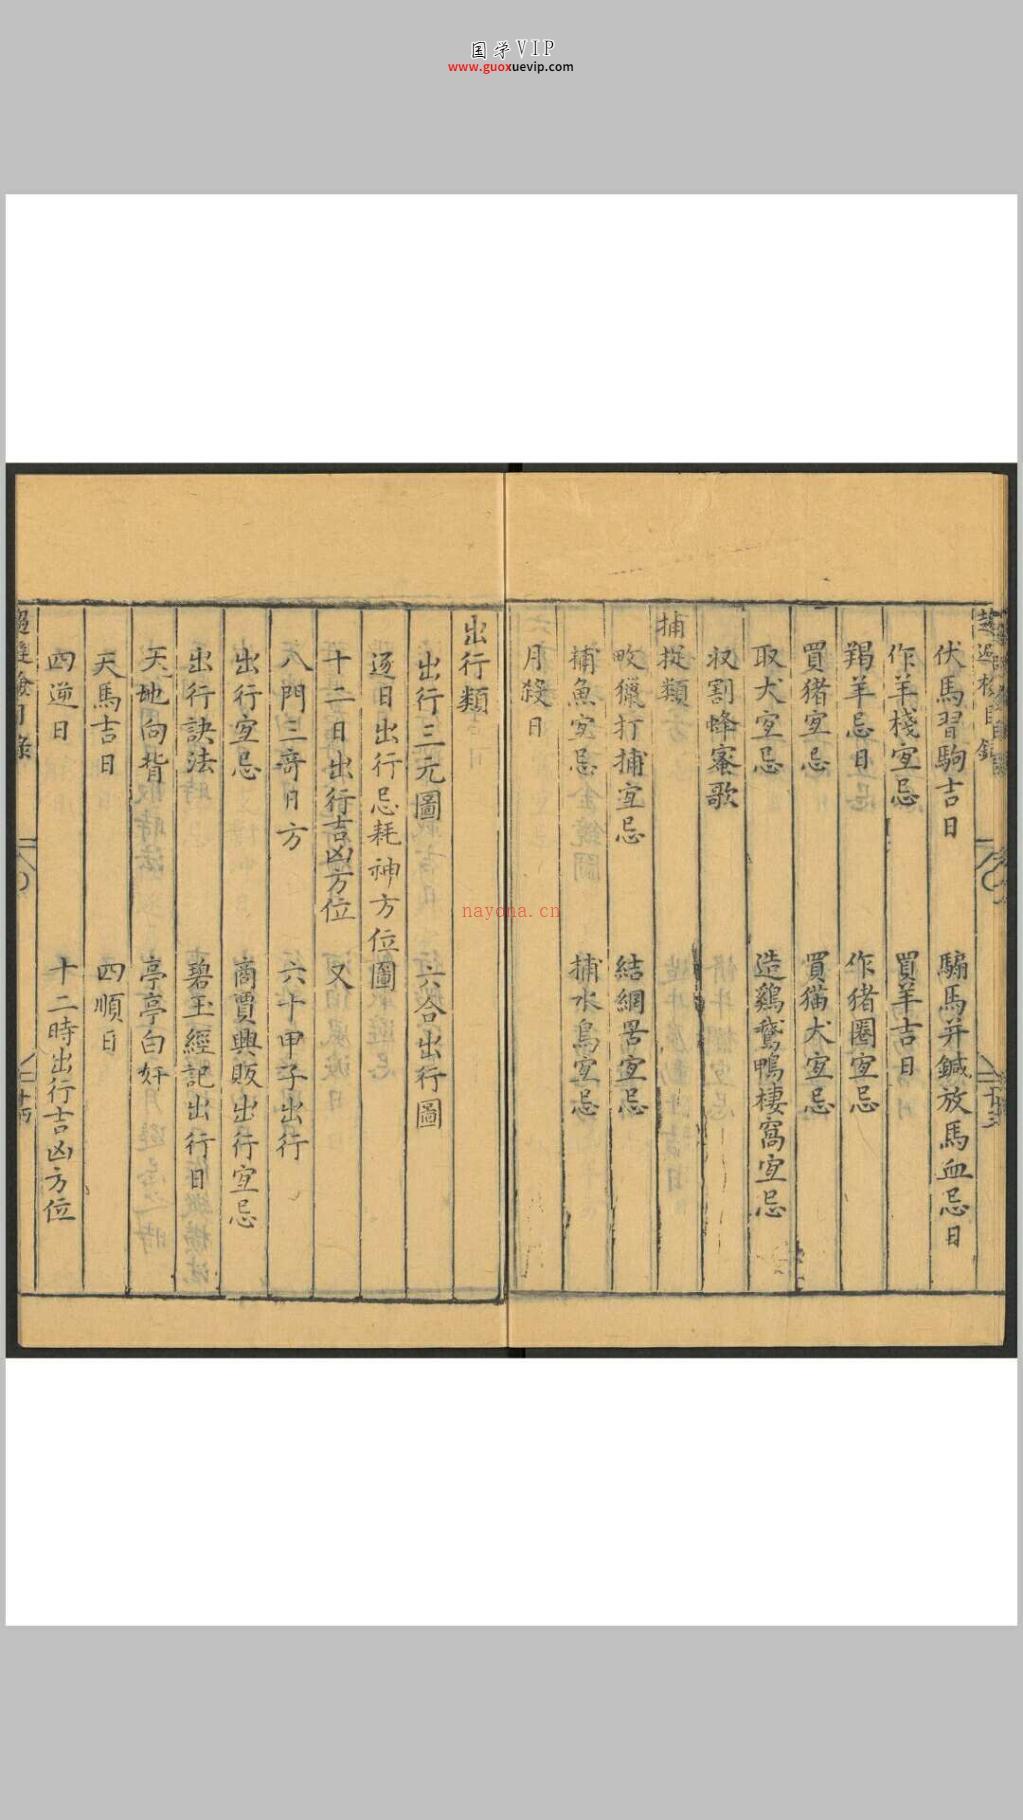 国学VIP
www.guoxuevip.com
伏馬習駒吉日　騸馬并鍼放馬血忌日
作羊棧宜忌　買羊吉日
羯羊忌日　作猪圈宜忌
買猪宜忌　買猫犬宜忌
取犬宜忌　造鷄鵞鴨棲窩宜忌
収割蜂蜜歌
捕捉類
畋獵打捕宜忌　結網罟宜忌
捕魚宜忌　捕水鳥宜忌
月殺日
nayona.cn
出行類
出行三元圖　六合出行圖
逐日出行忌耗神方位圖
十二日出行吉凶方位　又
八門三竒日方　六十甲子出行
出行宜忌　商賈興販出行宜忌
出行訣法　碧玉經記出行日
天地向背　亭亭白奸
天馬吉日　四順日
四逆日　十二時出行吉凶方位